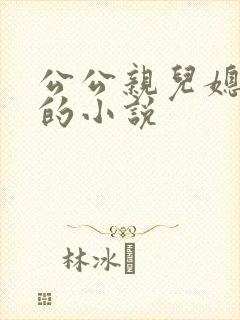 公公親兒媳
的小說
林冰